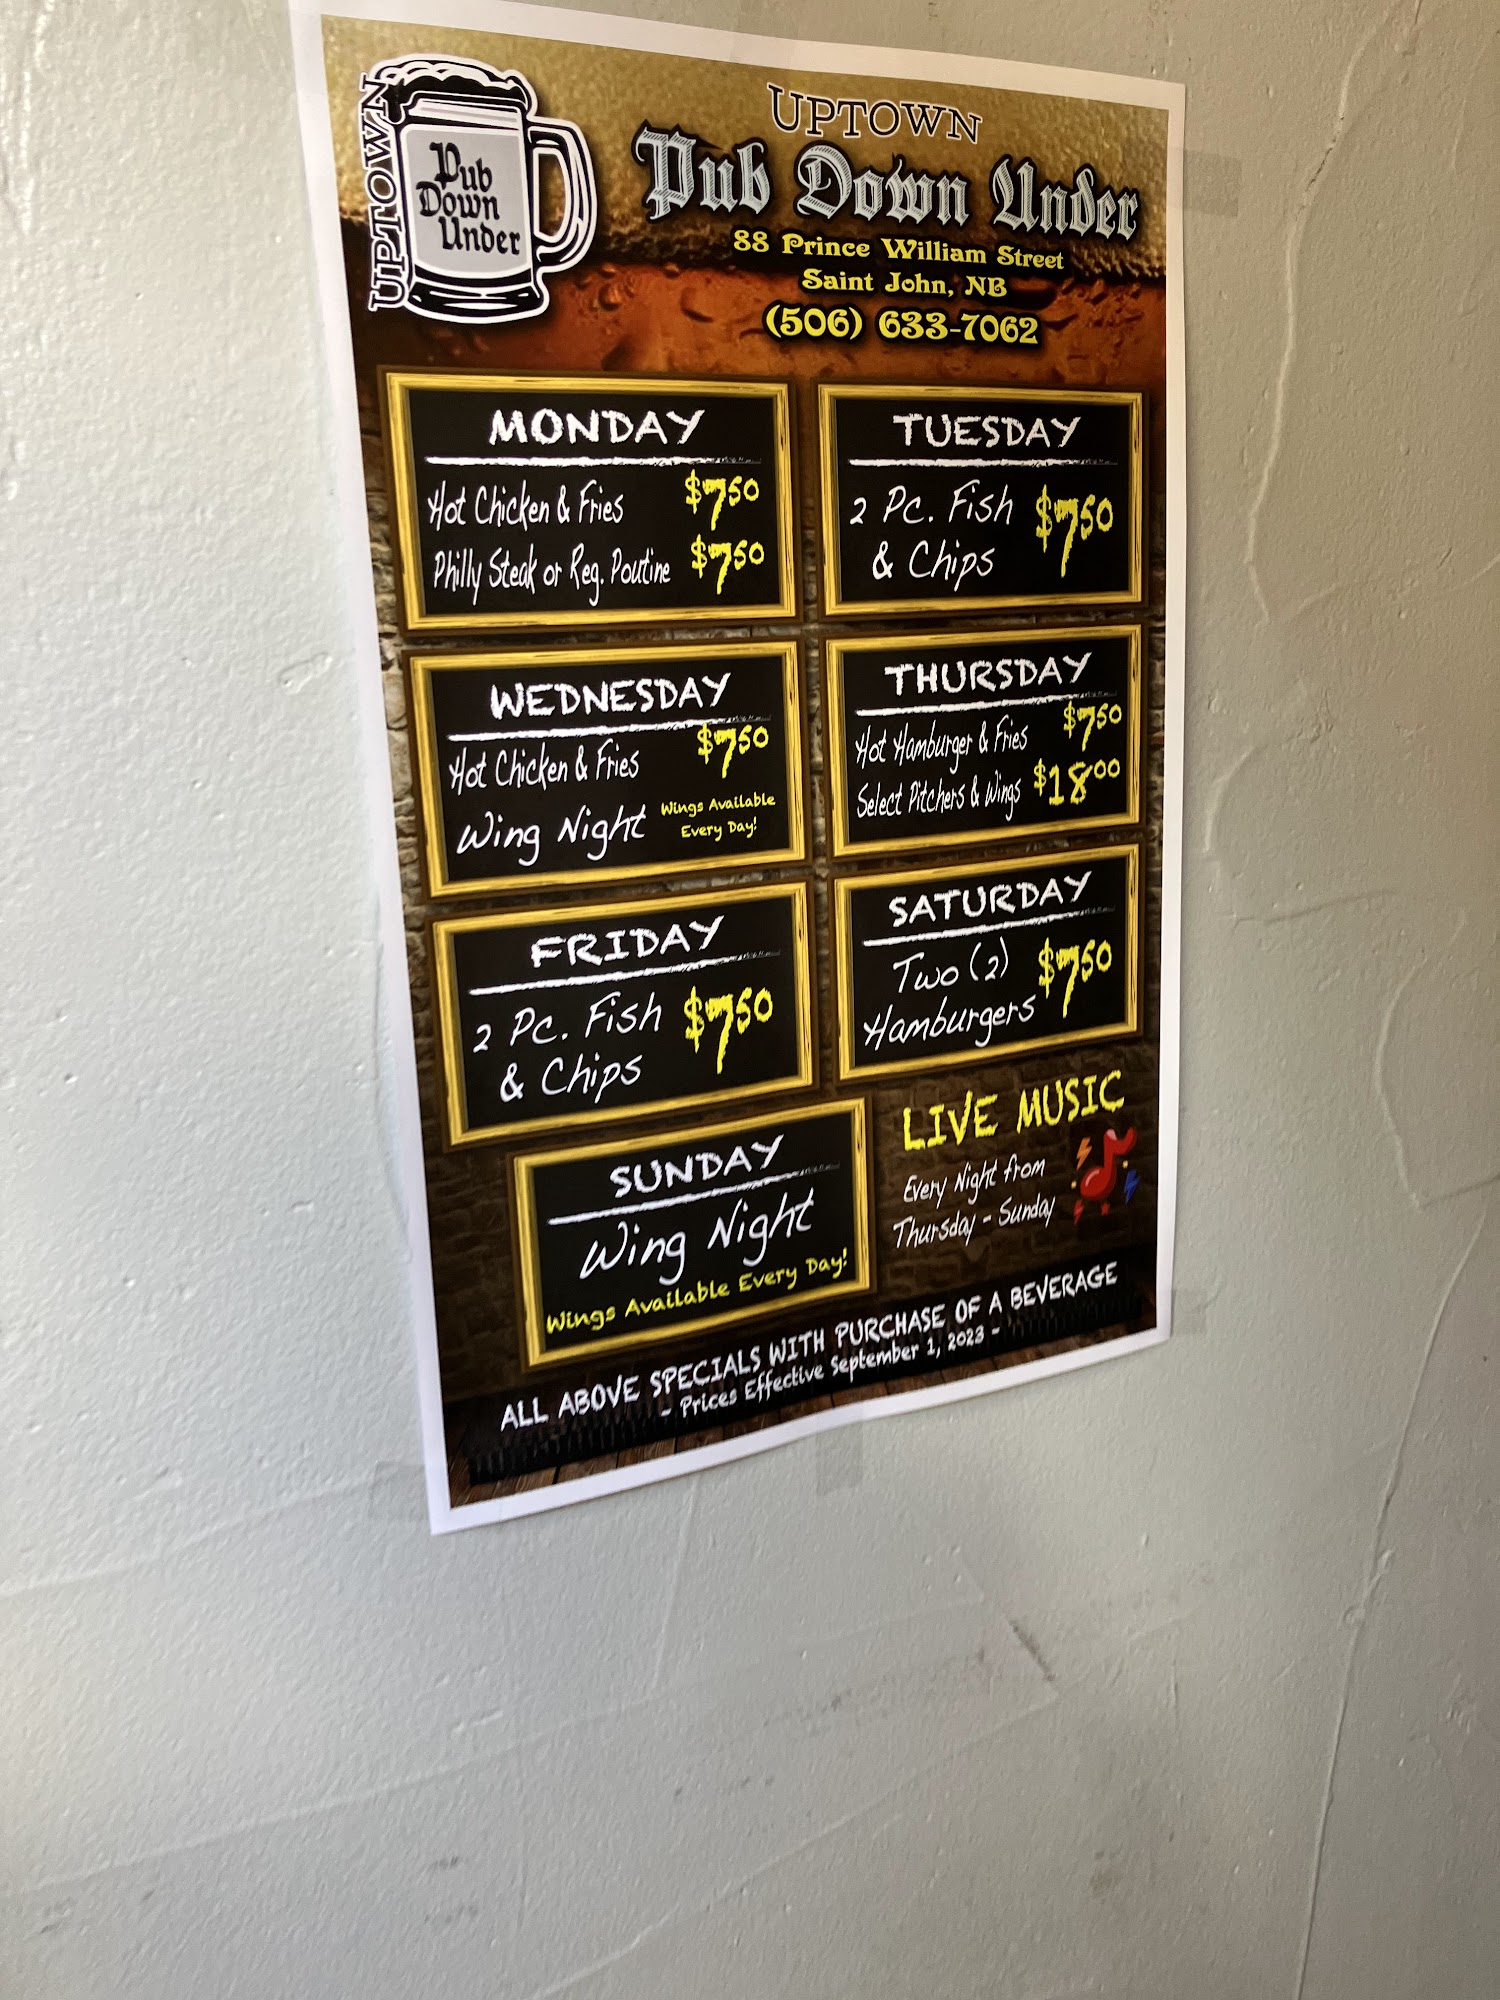 UPTOWN
Pub
Down
Under
UPTOWN
Pub Down Under
88 Prince William Street
Saint John, NB
(506) 633-7062
MONDAY
Hot Chicken & Fries $7.50
Philly Steak or Reg. Poutine $7.50
TUESDAY
2 Pc. Fish
& Chips
$7.50
WEDNESDAY
Hot Chicken & Fries $7.50
Wing Night
Wings Available
Every Day!
THURSDAY
Hot Hamburger & Fries $7.50
Select Pitchers & Wings $18.00
FRIDAY
2 Pc. Fish
& Chips
$7.50
SATURDAY
Two (2)
Hamburgers
$7.50
SUNDAY
Wing Night
Wings Available Every Day!
LIVE MUSIC
Every Night from
Thursday - Sunday
ALL ABOVE SPECIALS WITH PURCHASE OF A BEVERAGE
- Prices Effective September 1, 2023 -